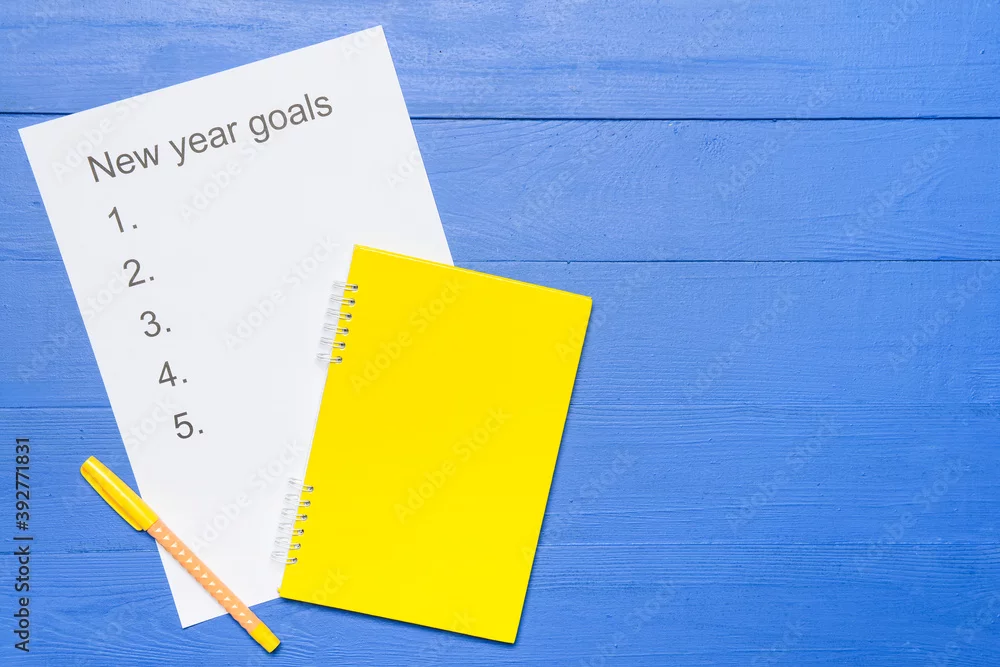 New year goals
1.
2.
3.
4.
5.
Adobe Stock | #392771831
Adobe Stock